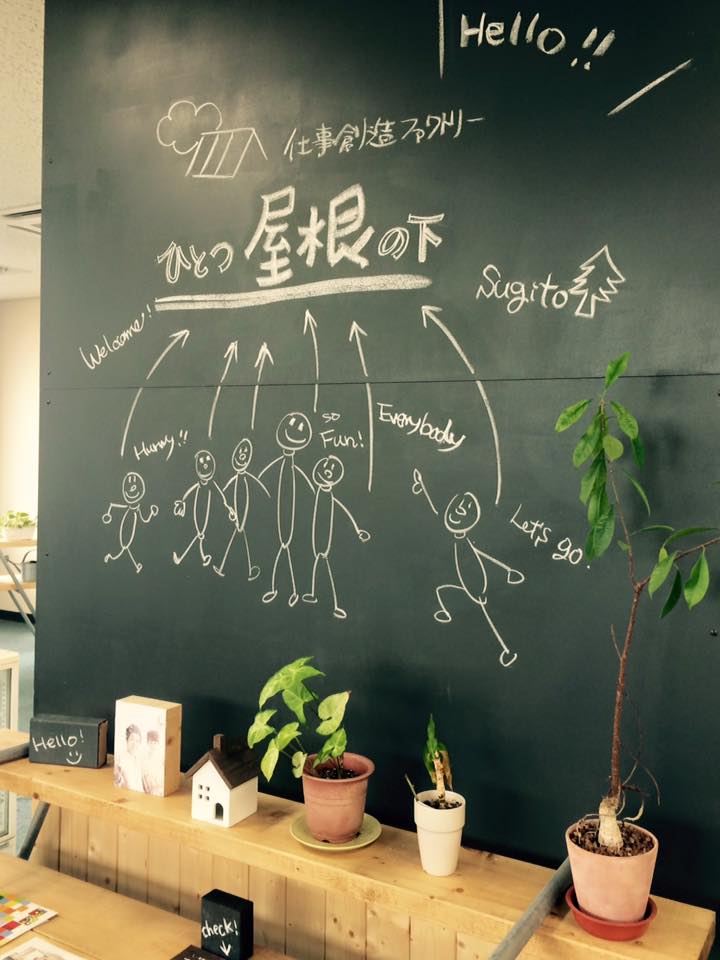 Hello!!
仕事創造ファクトリー
ひとつ屋根の下
Sugito
Welcome!
Hurry!!
so
Fun!
Everybody
Let's go.
Hello!
check!